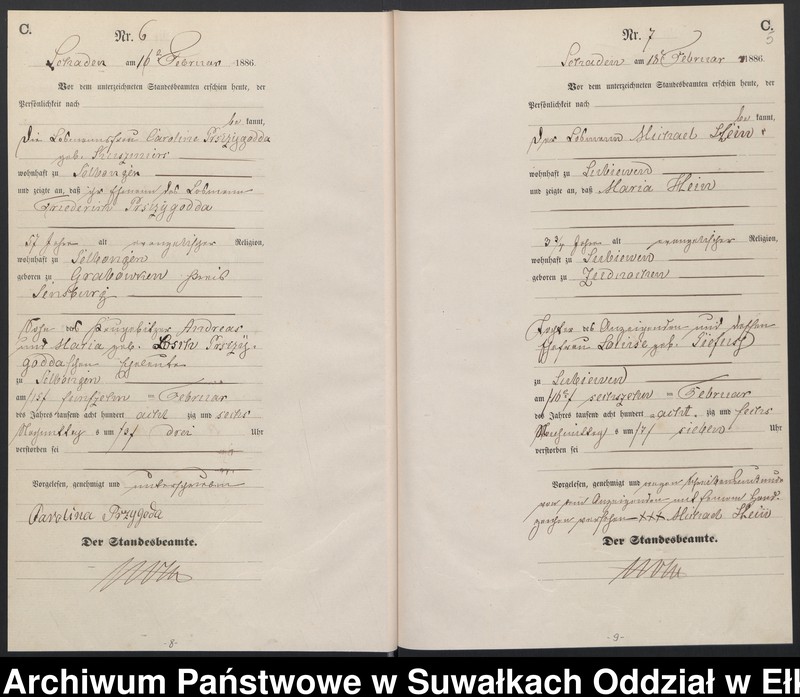 C.
Nr. 6
Schaden am 16ᵗ Februar 1886.
Vor dem unterzeichneten Standesbeamten erschien heute, der
Persönlichkeit nach
be kannt,
die Losmannsfrau Caroline Przygodda
geb.
wohnhaft zu Selbongen
und zeigte an, daß ihr Ehemann, der Losmann
Friederich Przygodda
57 Jahre alt evangelischer Religion,
wohnhaft zu Selbongen
geboren zu Grabowken Kreis
Sensburg
Sohn der Andreas
und Maria geb. Przy-
godda schen Eheleute
zu Selbongen
am /15/ fünfzehn = Februar
des Jahres tausend acht hundert acht zig und sechs
Nachmittag s um /3/ drei Uhr
verstorben sei
Vorgelesen, genehmigt und unterschrieben
Carolina Przygoda
Der Standesbeamte.
-8-
C.
5
Nr. 7
Schaden am 18ᵗ Februar 1886.
Vor dem unterzeichneten Standesbeamten erschien heute, der
Persönlichkeit nach
be kannt,
der Losmann Michael Klein
wohnhaft zu Lubiewen
und zeigte an, daß Maria Klein
3 3/4 Jahre alt evangelischer Religion,
wohnhaft zu Lubiewen
geboren zu
Tochter des Anzeigenden und dessen
Ehefrau Louise geb.
zu Lubiewen
am /16/ sechszehn = Februar
des Jahres tausend acht hundert acht zig und sechs
Nachmittag s um /7/ sieben Uhr
verstorben sei
Vorgelesen, genehmigt und wegen Schreibensunkunde
von dem Anzeigenden mit seinem Hand-
zeichen versehen +++ Michael Klein
Der Standesbeamte.
-9-
Archiwum Państwowe w Suwałkach Oddział w Eł